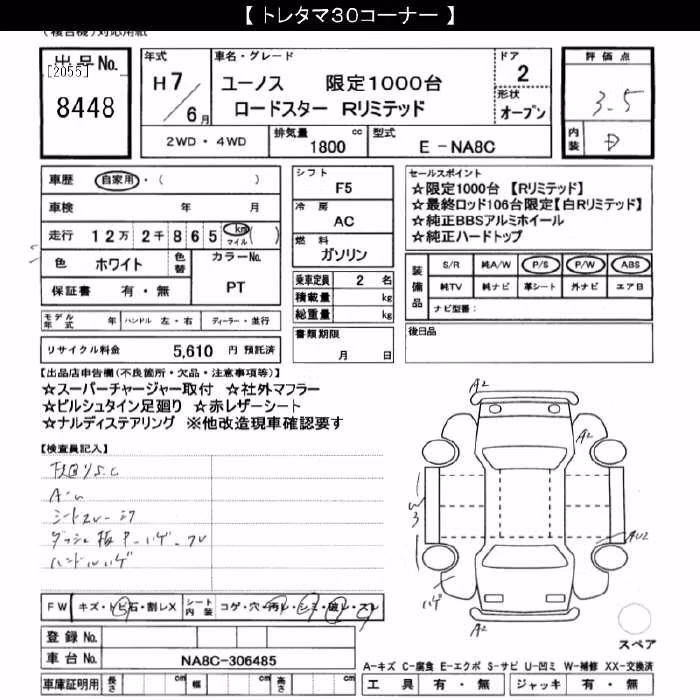 【 トレタマ30コーナー 】
(複合機)対応用紙
出品No.
[2055]
8448
年式
H 7
6 月
車名・グレード
ユーノス 限定1000台
ロードスター Rリミテッド
ドア
2
形状
オープン
評価点
3.5
内装
D
2WD・4WD
排気量 1800 cc
型式 E - NA8C
車歴 自家用・( )
車検 年 月
走行 12万 2千 865 km マイル ( )
色 ホワイト 色替 カラーNo. PT
保証書 有・無
シフト
F5
冷房
AC
燃料
ガソリン
乗車定員 2 名
積載量 kg
総重量 kg
書類期限
月 日
セールスポイント
☆限定1000台 【Rリミテッド】
☆最終ロッド106台限定【白Rリミテッド】
☆純正BBSアルミホイール
☆純正ハードトップ
装備品
S/R 純A/W P/S P/W ABS
純TV 純ナビ 革シート 外ナビ エアB
ナビ型番:
後日品
モデル年式 年 ハンドル 左・右 ディーラー・並行
リサイクル料金 5,610 円 預託済
【出品店申告欄(不良箇所・欠品・注意事項等)】
☆スーパーチャージャー取付 ☆社外マフラー
☆ビルシュタイン足廻り ☆赤レザーシート
☆ナルディステアリング ※他改造現車確認要す
【検査員記入】
シートスレ
ハンドルハゲ
A2
A2
W3
AU2
ハゲ
A2
FW キズ・トビ石・割レX シート内装 コゲ・穴・汚レ・シミ・破レ・スレ
登録No.
車台No. NA8C-306485
車庫証明用 長さ cm 幅 cm 高さ cm
スペア
A-キズ C-腐食 E-エクボ S-サビ U-凹ミ W-補修 XX-交換済
工具 有・無 ジャッキ 有・無